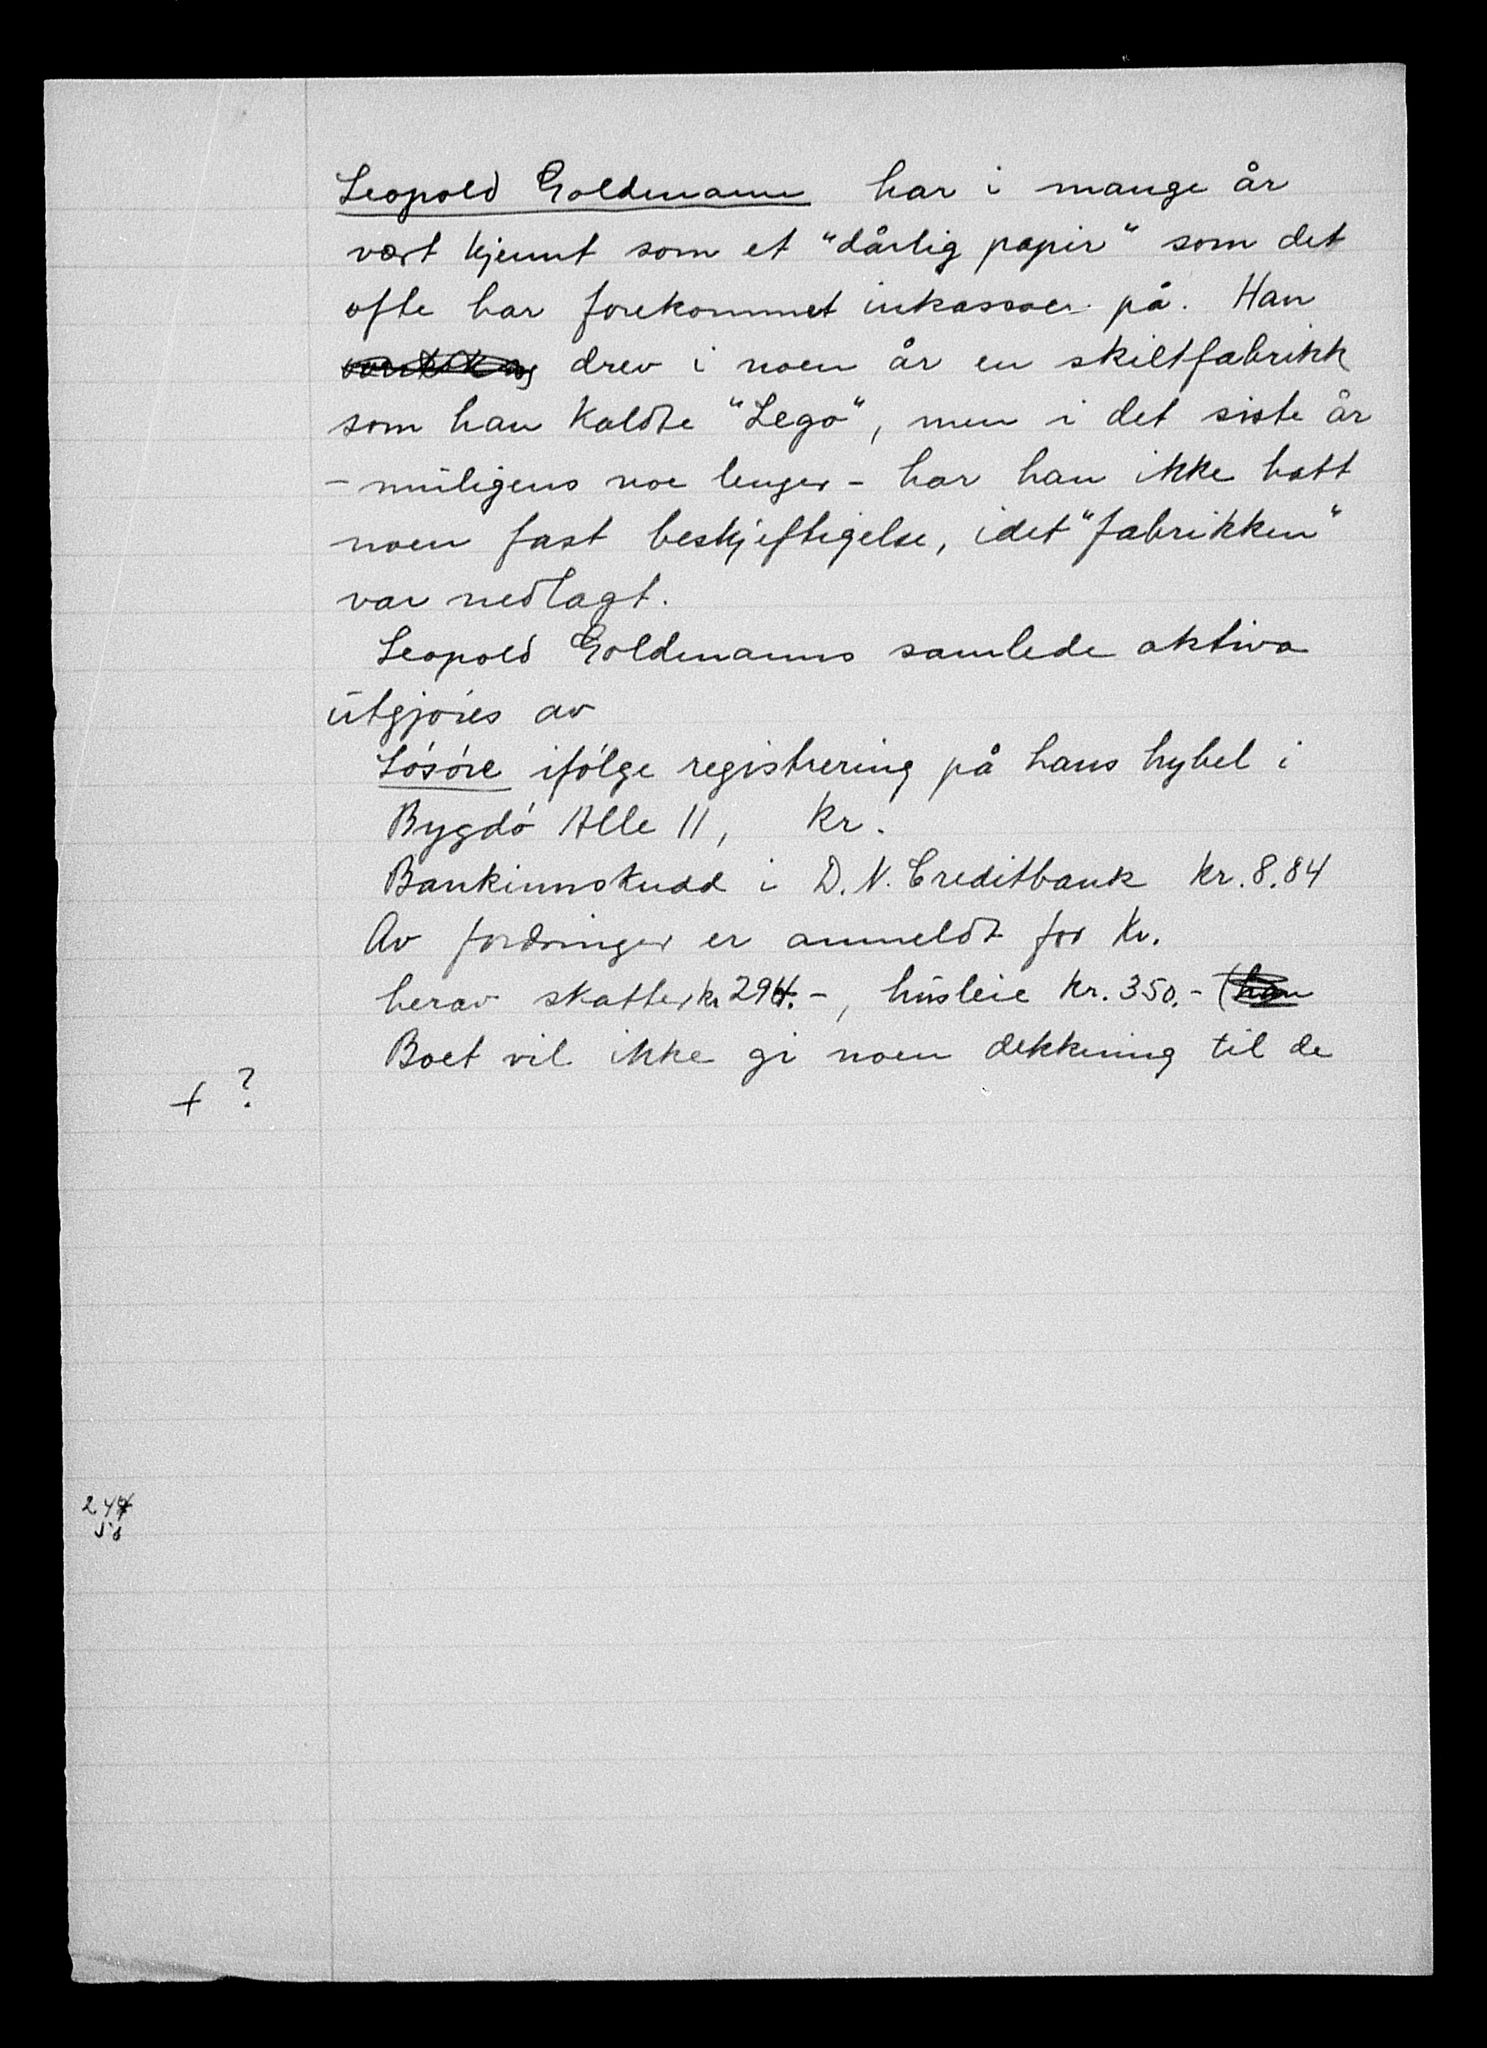 Leopold Goldmann har i mange år
vært kjennt som et "dårlig papir" som det
ofte har forekommet inkassoer på. Han
drev i noen år en skiltfabrikk
som han kaldte "Lego", men i det siste år
- muligens noe lenger - har han ikke hatt
noen fast beskjeftigelse, idet "fabrikken"
var nedlagt.
Leopold Goldmanns samlede aktiva
utgjøres av
Løsøre ifølge registrering på hans hybel i
Bygdø Alle 11, kr.
Bankinnskudd i D.N. Creditbank kr. 8.84
Av fordringer er anmeldt for Kr.
herav skatter kr 294.-, husleie kr. 350.-
Boet vil ikke gi noen dekkning til de
+ ?